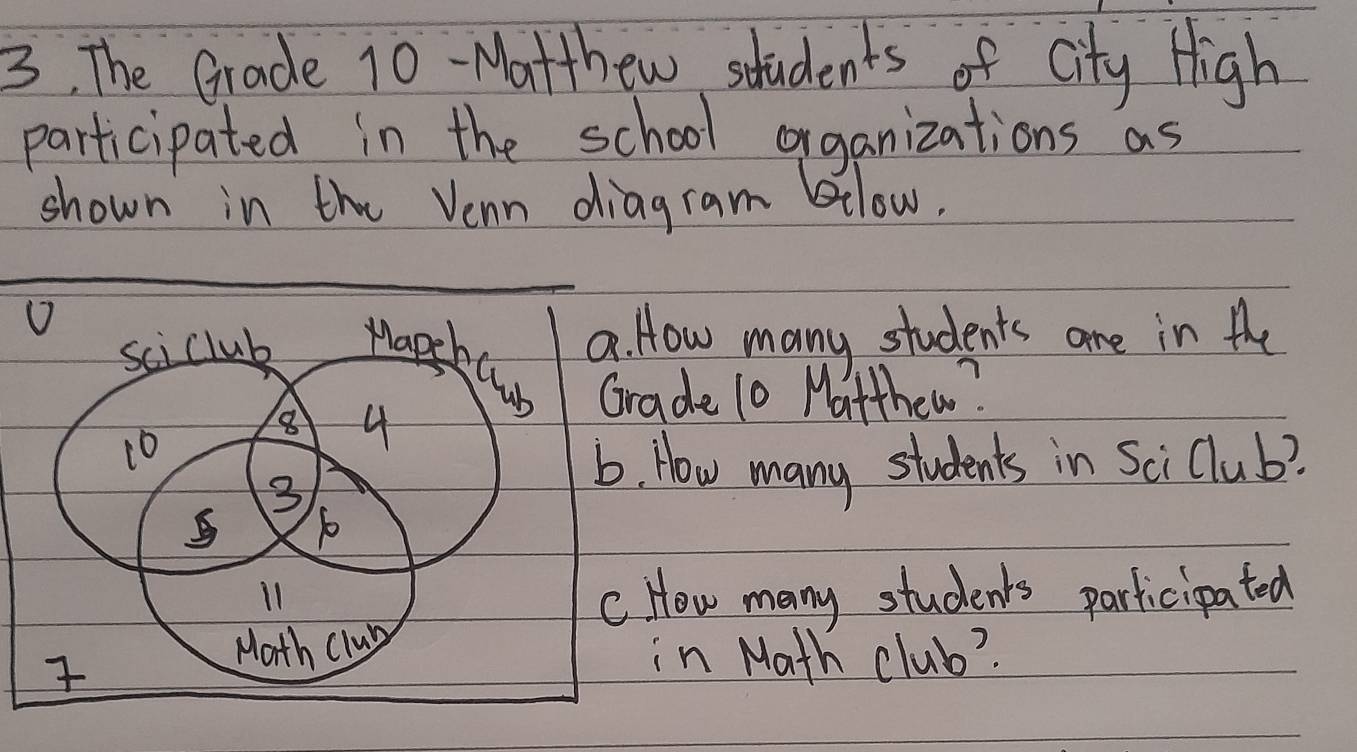 3. The Grade 10 - Matthew students of City High
participated in the school organizations as
shown in the Venn diagram below.
U
Sci Club
Mapeh Club
10
8
4
3
5
6
11
Math Club
7
a. How many students are in the
Grade 10 Matthew?
b. How many students in Sci Club?
c. How many students participated
in Math club?